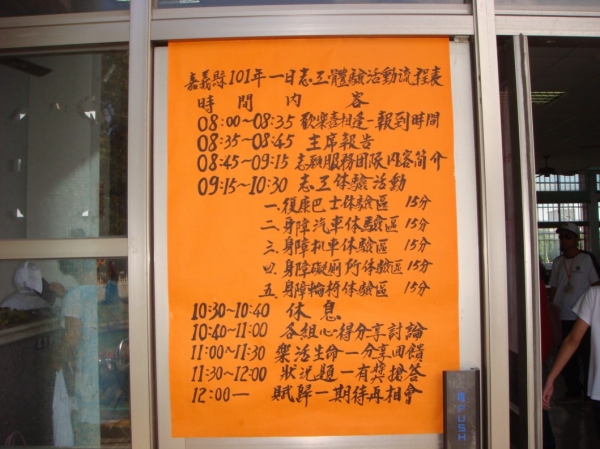 嘉義縣101年一日志工體驗活動流程表
時間內容
08:00~08:35 歡樂喜相逢-報到時間
08:35~08:45 主席報告
08:45~09:15 志願服務團隊內容簡介
09:15~10:30 志工体驗活動
一.復康巴士体驗區 15分
二.身障汽車体驗區 15分
三.身障机車体驗區 15分
四.身障礙厠所体驗區 15分
五.身障輪椅体驗區 15分
10:30~10:40 休息
10:40~11:00 各組心得分享討論
11:00~11:30 樂活生命一分享回饋
11:30~12:00 狀況題一有獎搶答
12:00— 賦歸一期待再相會
PUSH